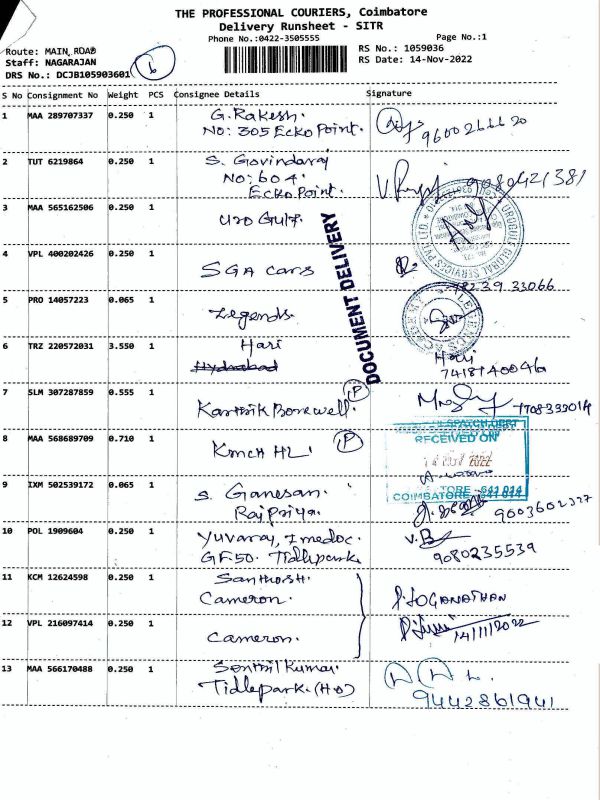 THE PROFESSIONAL COURIERS, Coimbatore
Delivery Runsheet - SITR
Phone No.:0422-3505555
Page No.:1
Route: MAIN ROAD
Staff: NAGARAJAN
DRS No.: DCJB105903601
RS No.: 1059036
RS Date: 14-Nov-2022
S No Consignment No Weight PCS Consignee Details Signature
1 MAA 289707337 0.250 1 G. Rakesh.
No: 305 Ecko Point.
2 TUT 6219864 0.250 1 S. Govindaraj
No: 604. 9080421381
Ecko Point.
3 MAA 565162506 0.250 1 Uro Gulf.
4 VPL 400202426 0.250 1 SGA Cars
78239 33066
DOCUMENT DELIVERY
5 PRO 14057223 0.065 1 Legends.
6 TRZ 220572031 3.550 1 Hari Hari
Hydrabad 7418140046
7 SLM 307287859 0.555 1 Karthik Borewell. P
8 MAA 568689709 0.710 1 KMCH HL P
RECEIVED ON
COIMBATORE - 641 014
9 IXM 502539172 0.065 1 S. Ganesan.
Rajpriya. 9003602327
10 POL 1909604 0.250 1 Yuvaraj, Imedoc. V.B
GF50. Tidlepark. 9080235539
11 KCM 12624598 0.250 1 Santhosh.
Cameron. P. LOGANATHAN
12 VPL 216097414 0.250 1 Cameron. 14/11/2022
13 MAA 566170488 0.250 1 Senthil Kumar.
Tidlepark. (HO) 9442861941